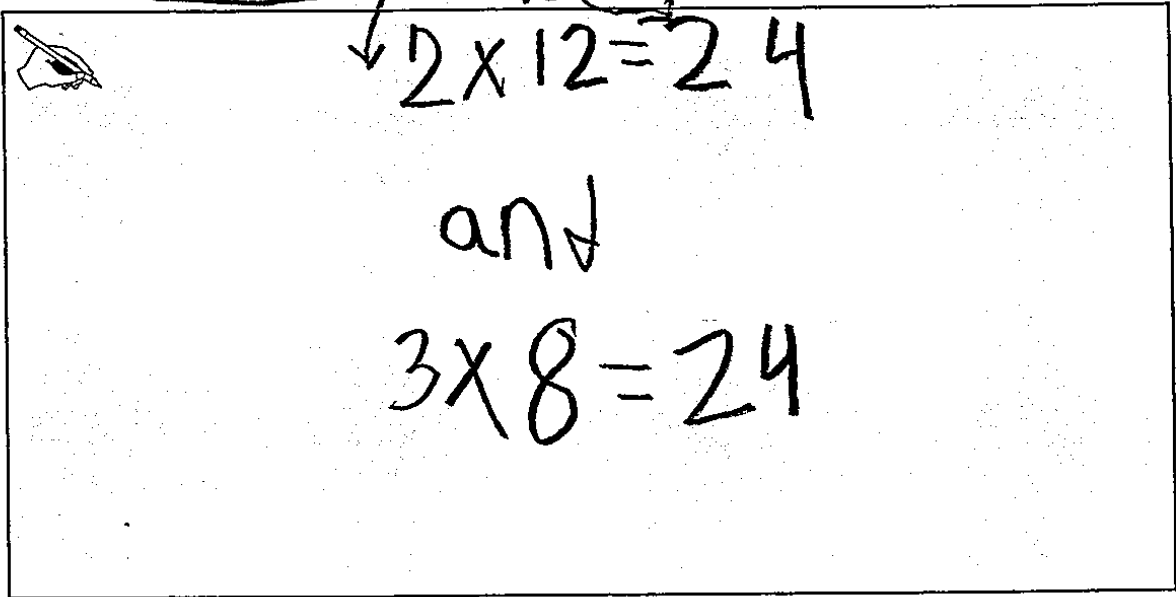 2 x 12 = 24
and
3 x 8 = 24